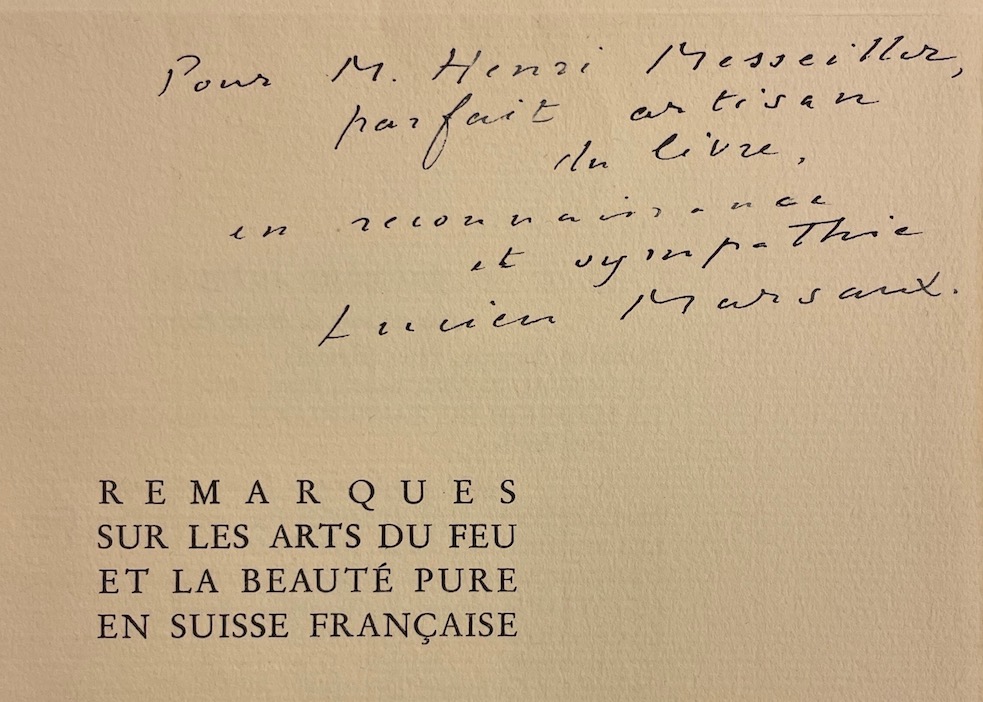 Pour M. Henri Messeiller,
parfait artisan
du livre,
en reconnaissance
et sympathie
Lucien Marsaux.
REMARQUES
SUR LES ARTS DU FEU
ET LA BEAUTÉ PURE
EN SUISSE FRANÇAISE